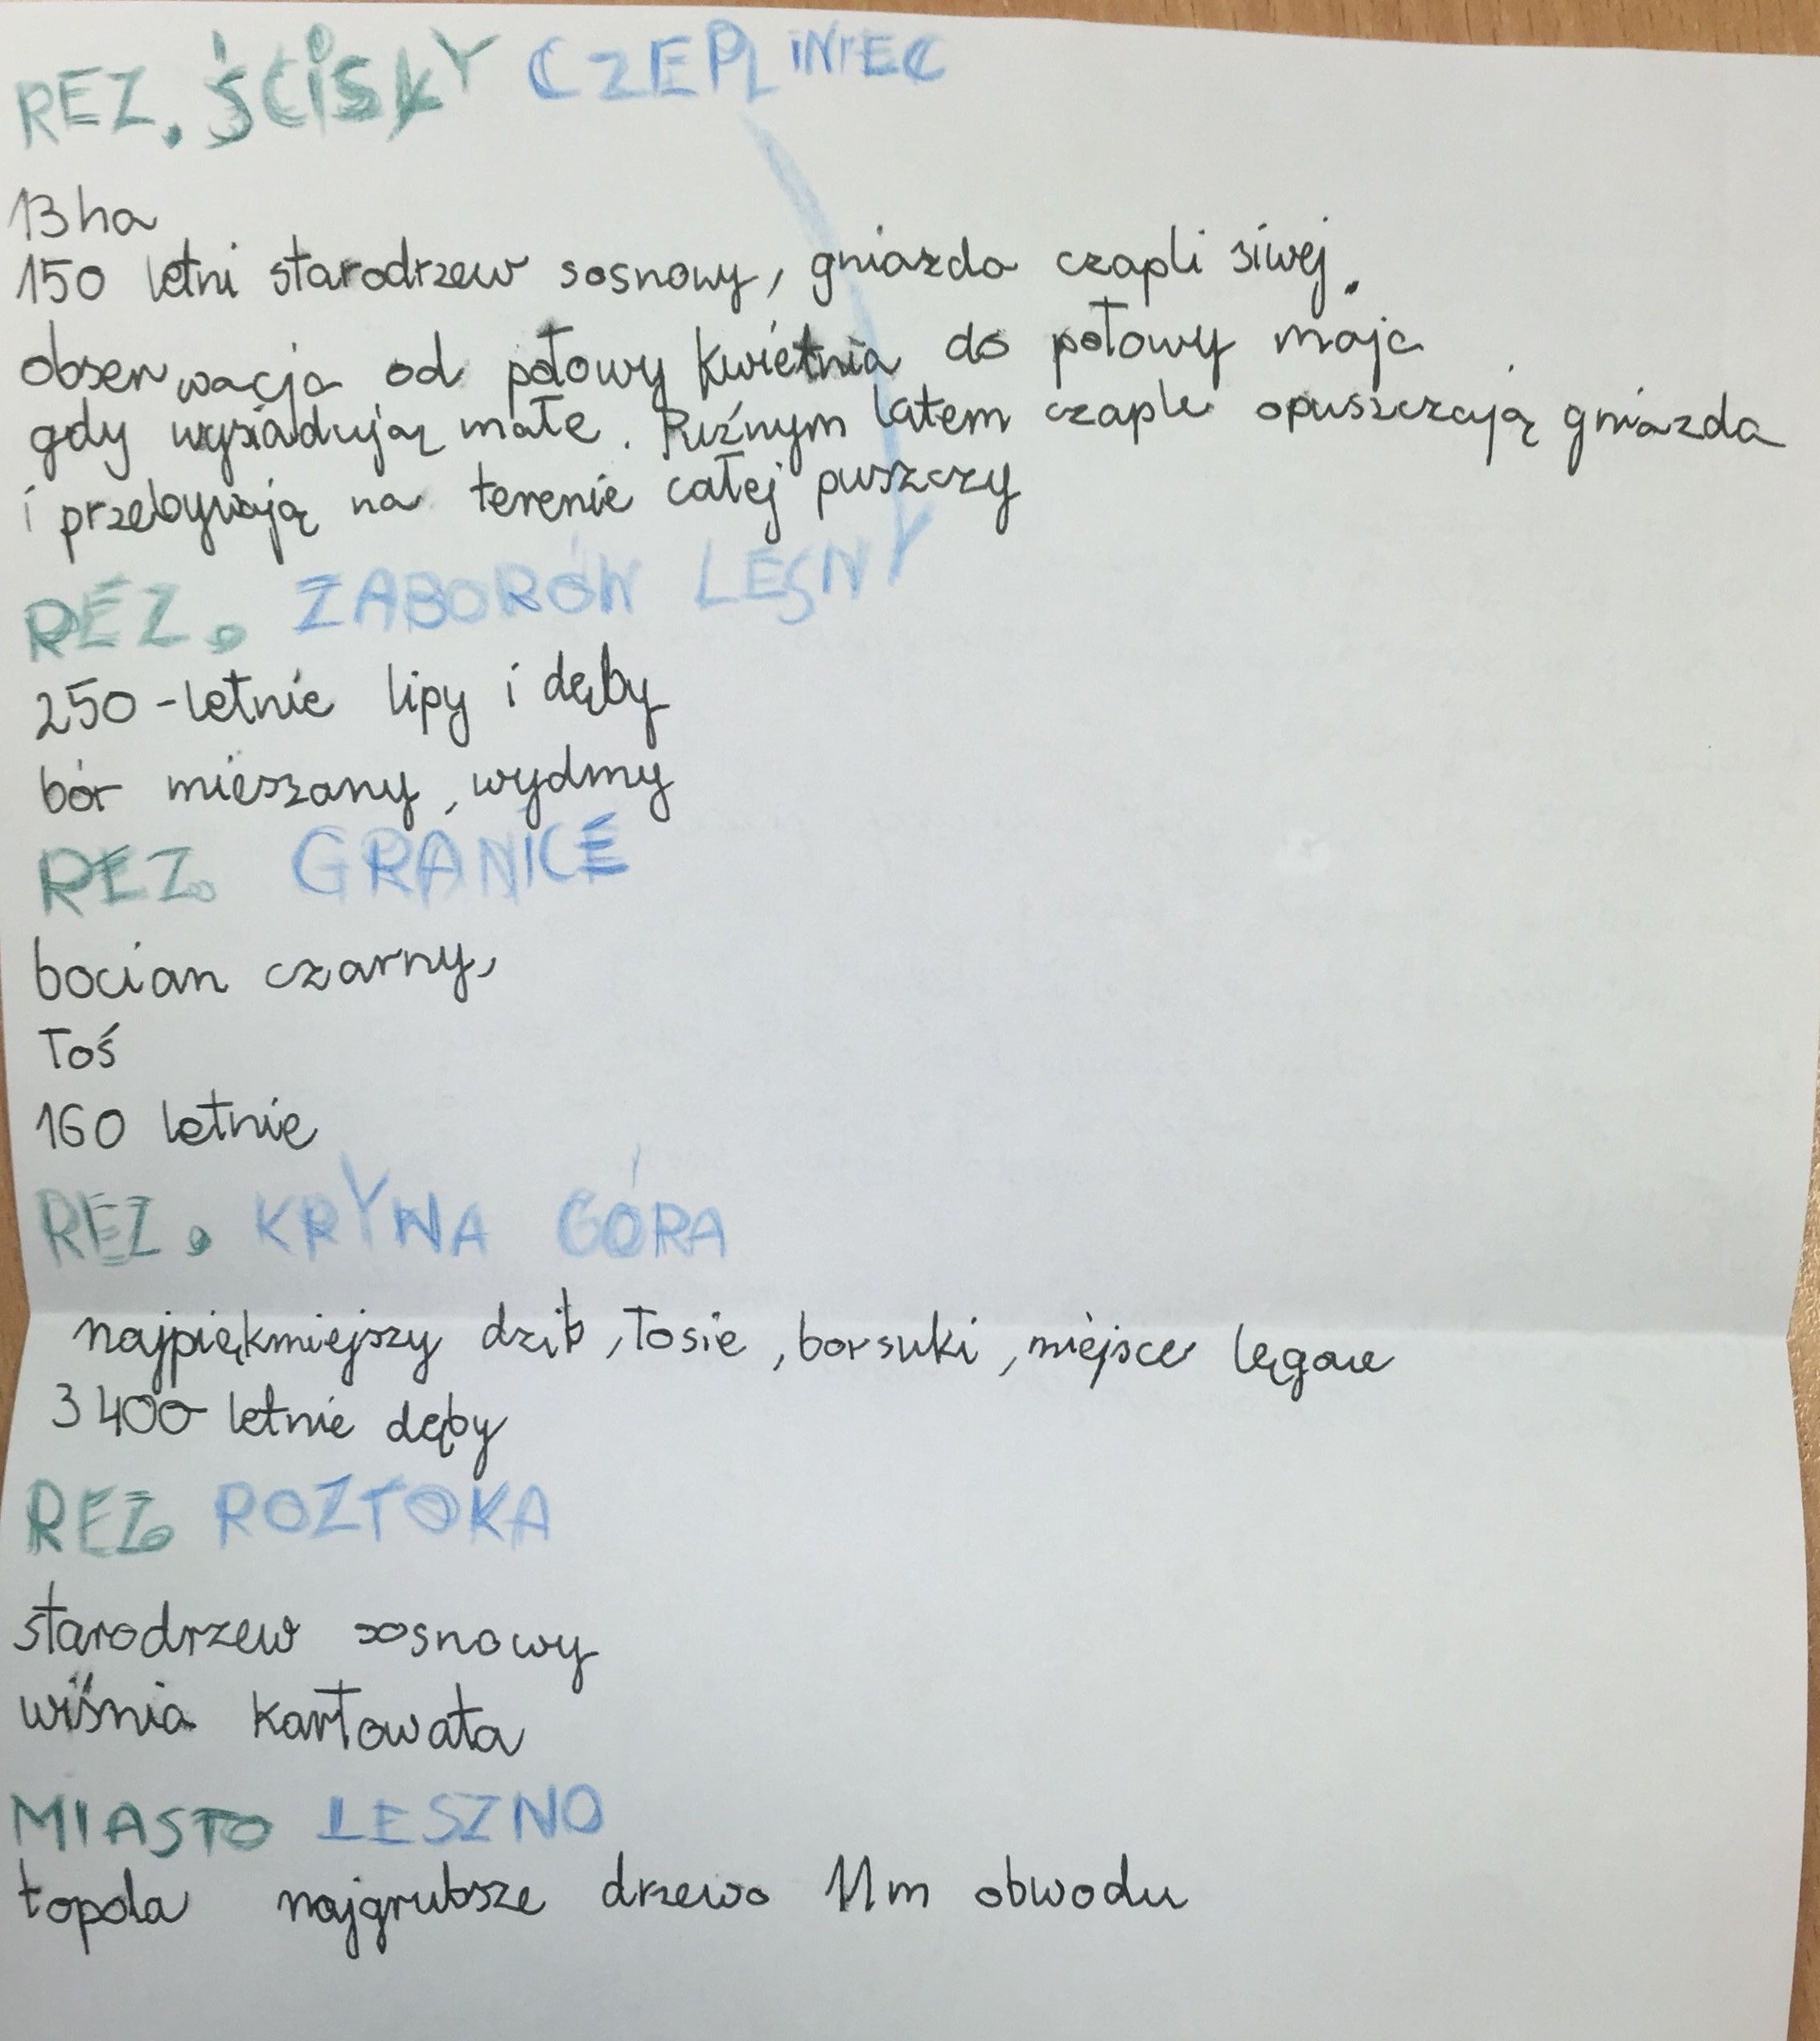 REZ. ŚCISKY CZEPLINIEC
13 ha
150 letni starodrzew sosnowy, gniazda czapli siwej.
obserwacja od połowy kwietnia do połowy maja
gdy wysiadują małe. Puźnym latem czaple opuszczają gniazda
i przebywają na terenie całej puszczy
REZ. ZABORÓW LEŚNY
250-letnie lipy i dęby
bór mieszany, wydmy
REZ. GRANICE
bocian czarny,
łoś
160 letnie
REZ. KRYWA GÓRA
najpiękmiejszy dzik, łosie, borsuki, miejsce lęgowe
3 400 letnie dęby
REZ. ROZTOKA
starodrzew sosnowy
wiśnia karłowata
MIASTO LESZNO
topola najgrubsze drzewo 11m obwodu